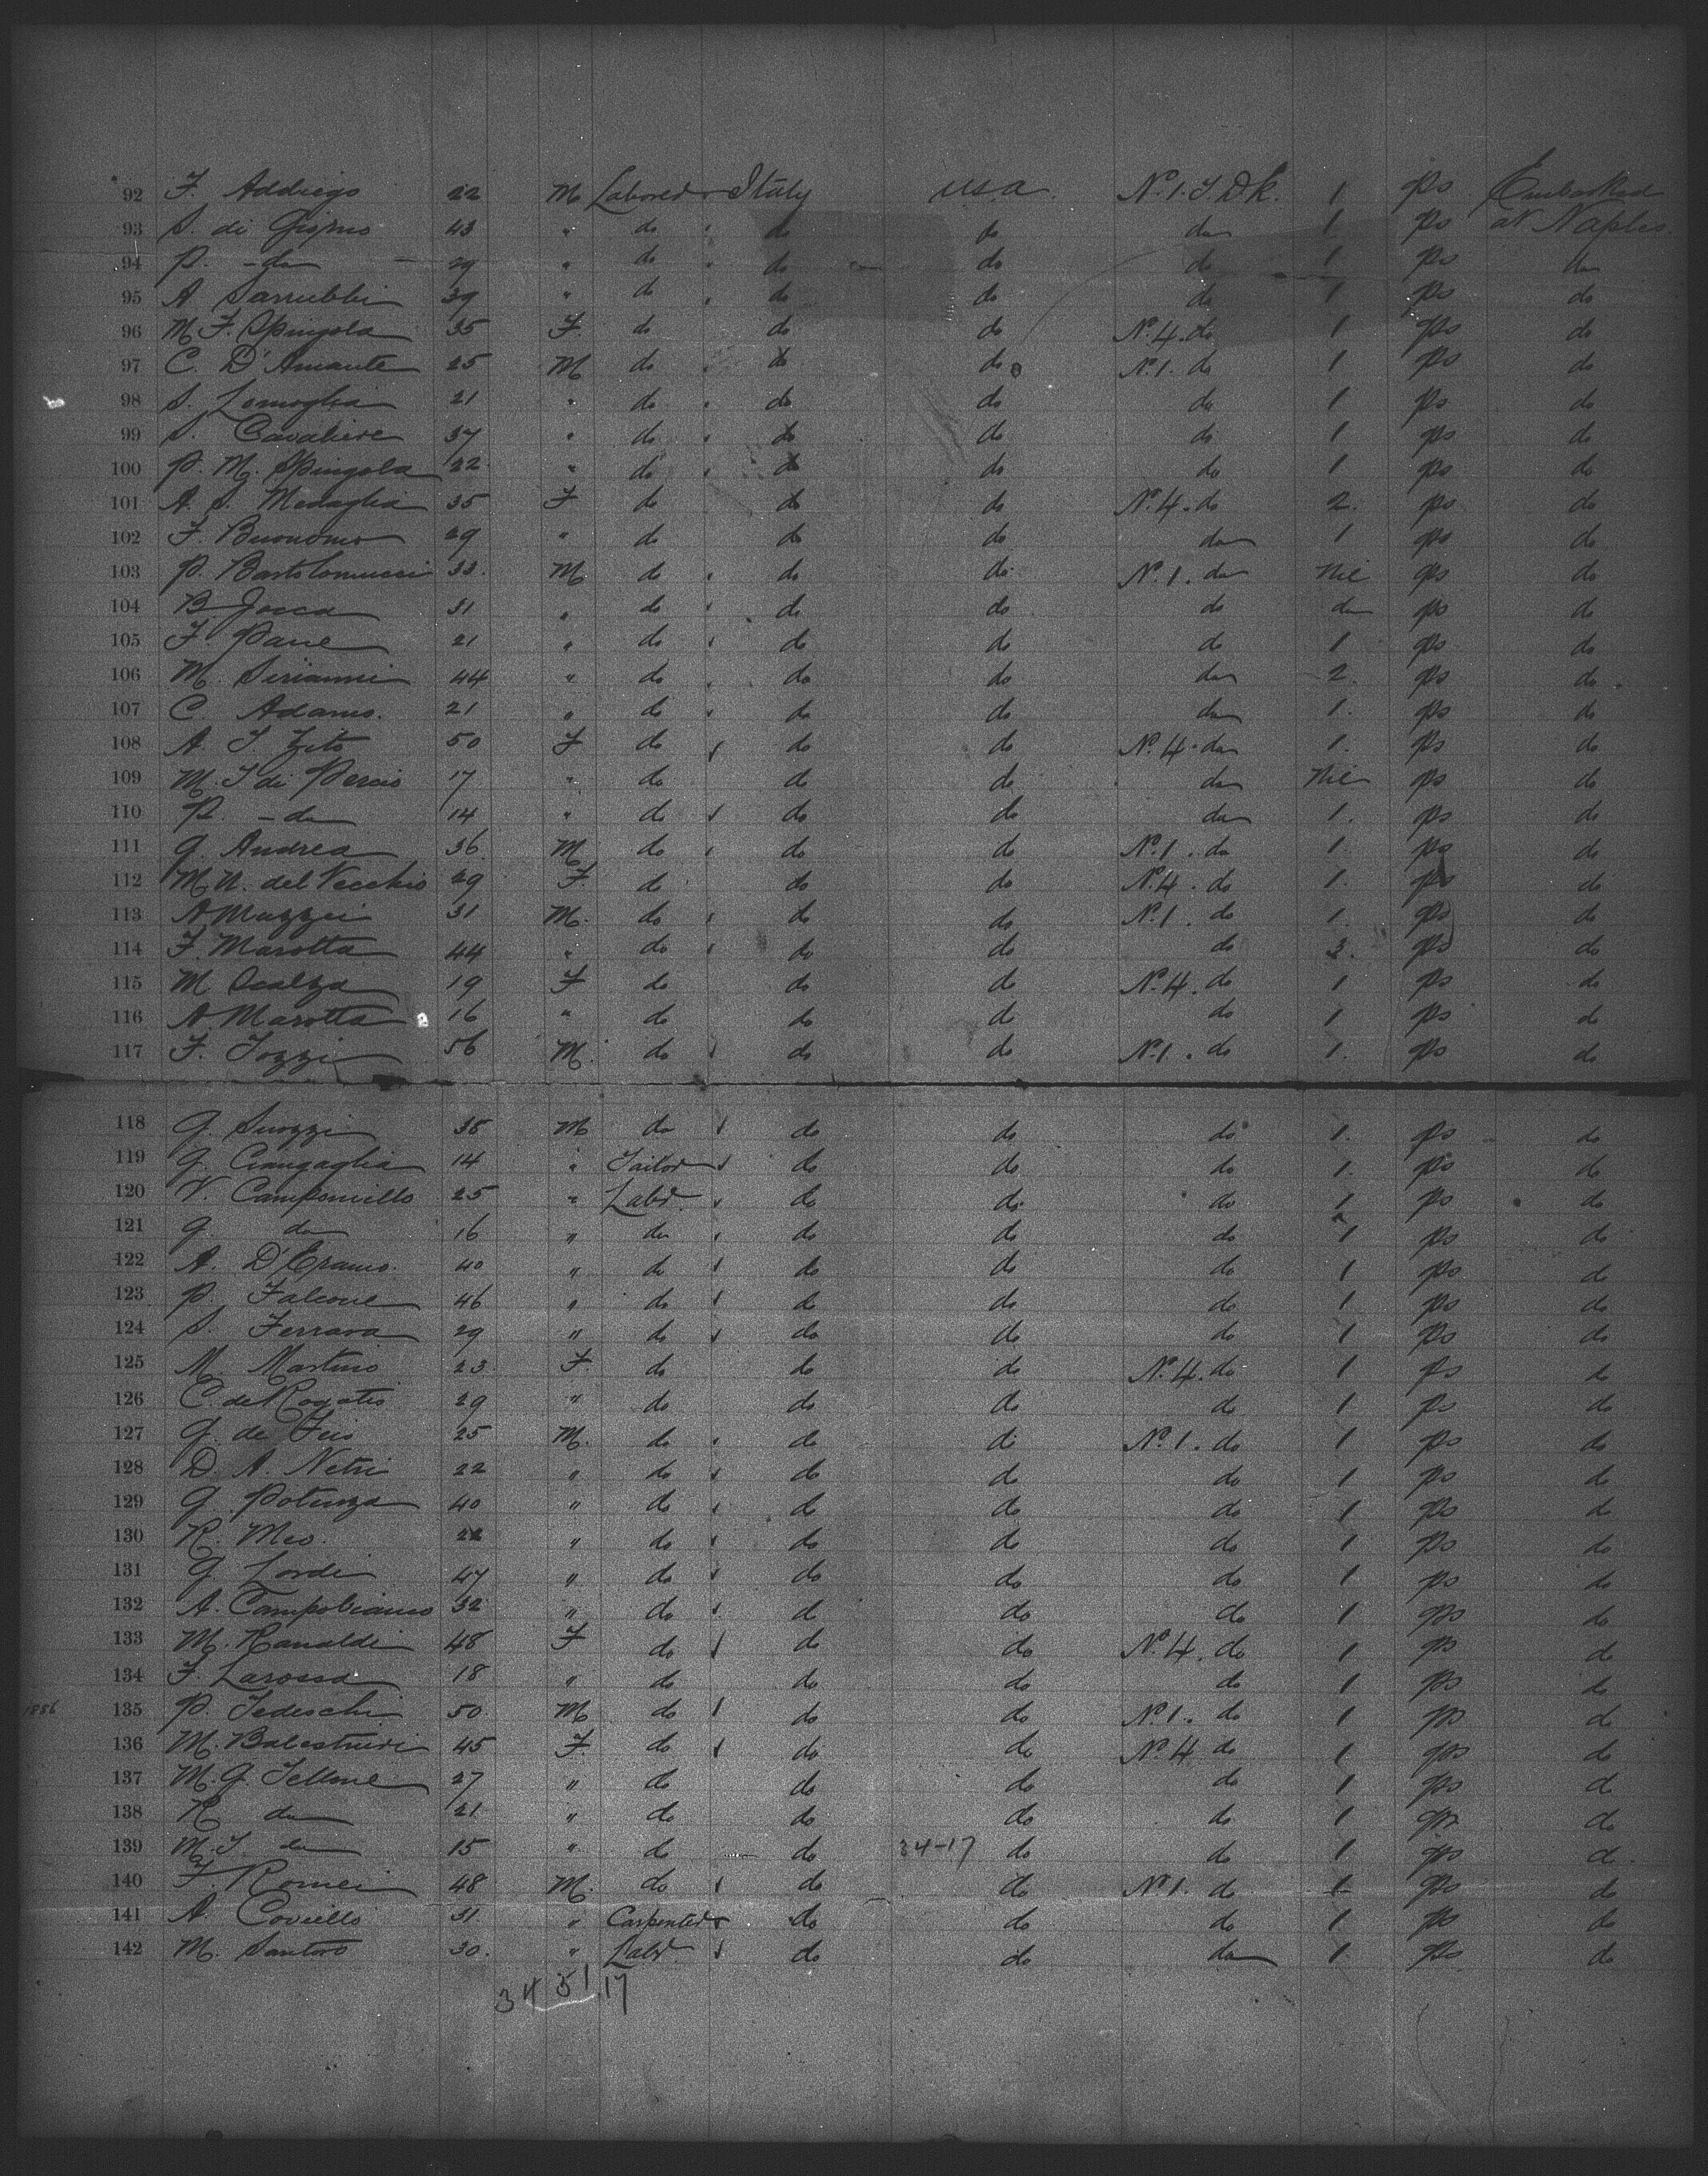 92 F. Addiego 22 M Laborer Italy U.S.A. No. 1. T. Dk. 1 ps Embarked
93 S. di Giorno 43 " do do do do 1 ps at Naples.
94 P. - do 29 " do do do do 1 ps do
95 A Sarrubbi 39 " do do do do 1 ps do
96 M. F. Spingola 35 F. do do do No. 4. do 1 ps do
97 C. D'Amante 25 M do do do No. 1. do 1 ps do
98 S. Lomoglia 21 " do do do do 1 ps do
99 S. Cavaliere 37 " do do do do 1 ps do
100 P. M. Spingola 22 " do do do do 1 ps do
101 A. S. Medaglia 35 F do do do No. 4. do 2. ps do
102 F. Buondmo 29 " do do do do 1 ps do
103 P. Bartolomucci 33. M do do do No. 1. do Nil ps do
104 B Jocca 31 " do do do do do ps do
105 F. Pane 21 " do do do do 1 ps do
106 M. Sirianni 44 " do do do do 2. ps do
107 C. Adamo. 21 " do do do do 1. ps do
108 A. T. Zito 50 F do do do No. 4. do 1. ps do
109 M. T di Percio 17 " do do do do Nil ps do
110 P. - do 14 " do do do do 1. ps do
111 G. Andrea 36 M do do do No. 1. do 1. ps do
112 M. N. del Vecchio 29 F. do do do No. 4. do 1. ps do
113 A Muzzei 31 M. do do do No. 1. do 1. ps do
114 F. Marotta 44 " do do do do 3. ps do
115 M Scalza 19 F do do do No. 4. do 1 ps do
116 A. Marotta 16 " do do do do 1 ps do
117 F. Tozzi 56 M. do do do No. 1. do 1. ps do
118 G. Suozzi 35 M do do do do 1. ps do
119 G. Ciangaglia 14 " Tailor do do do 1. ps do
120 V. Campomillo 25 " Labr. do do do 1 ps do
121 G do 16 " do do do do 1 ps do
122 A. D'Eramo. 40 " do do do do 1 ps do
123 P. Falcone 46 " do do do do 1 ps do
124 S. Ferrara 29 " do do do do 1 ps do
125 M. Martino 23. F. do do do No. 4. do 1 ps do
126 C. de Rogatis 29 " do do do do 1 ps do
127 G. de Feis 25 M. do do do No. 1. do 1 ps do
128 D. A. Netri 22 " do do do do 1 ps do
129 G. Potenza 40 " do do do do 1 ps do
130 R. Meo. 22 " do do do do 1 ps do
131 G Lordi 47 " do do do do 1 ps do
132 A. Campobianco 32 " do do do do 1 ps do
133 M. Ranaldi 48 F do do do No. 4. do 1 ps do
134 F. Larossa 18 " do do do do 1 ps do
1886 135 P. Tedeschi 50. M do do do No. 1. do 1 ps do
136 M. Balestrieri 45 F. do do do No. 4 do 1 ps do
137 M. G. Tellone 27 " do do do do 1 ps do
138 R do 21. " do do do do 1 ps do
139 M. T. do 15 " do do 34-17 do do 1 ps do
140 F. Romei 48 M. do do do No. 1. do 1 ps do
141 A. Coviello 31. " Carpenter do do do 1 ps do
142 M. Santoro 30. " Labr do do do 1. ps do
34 51 17